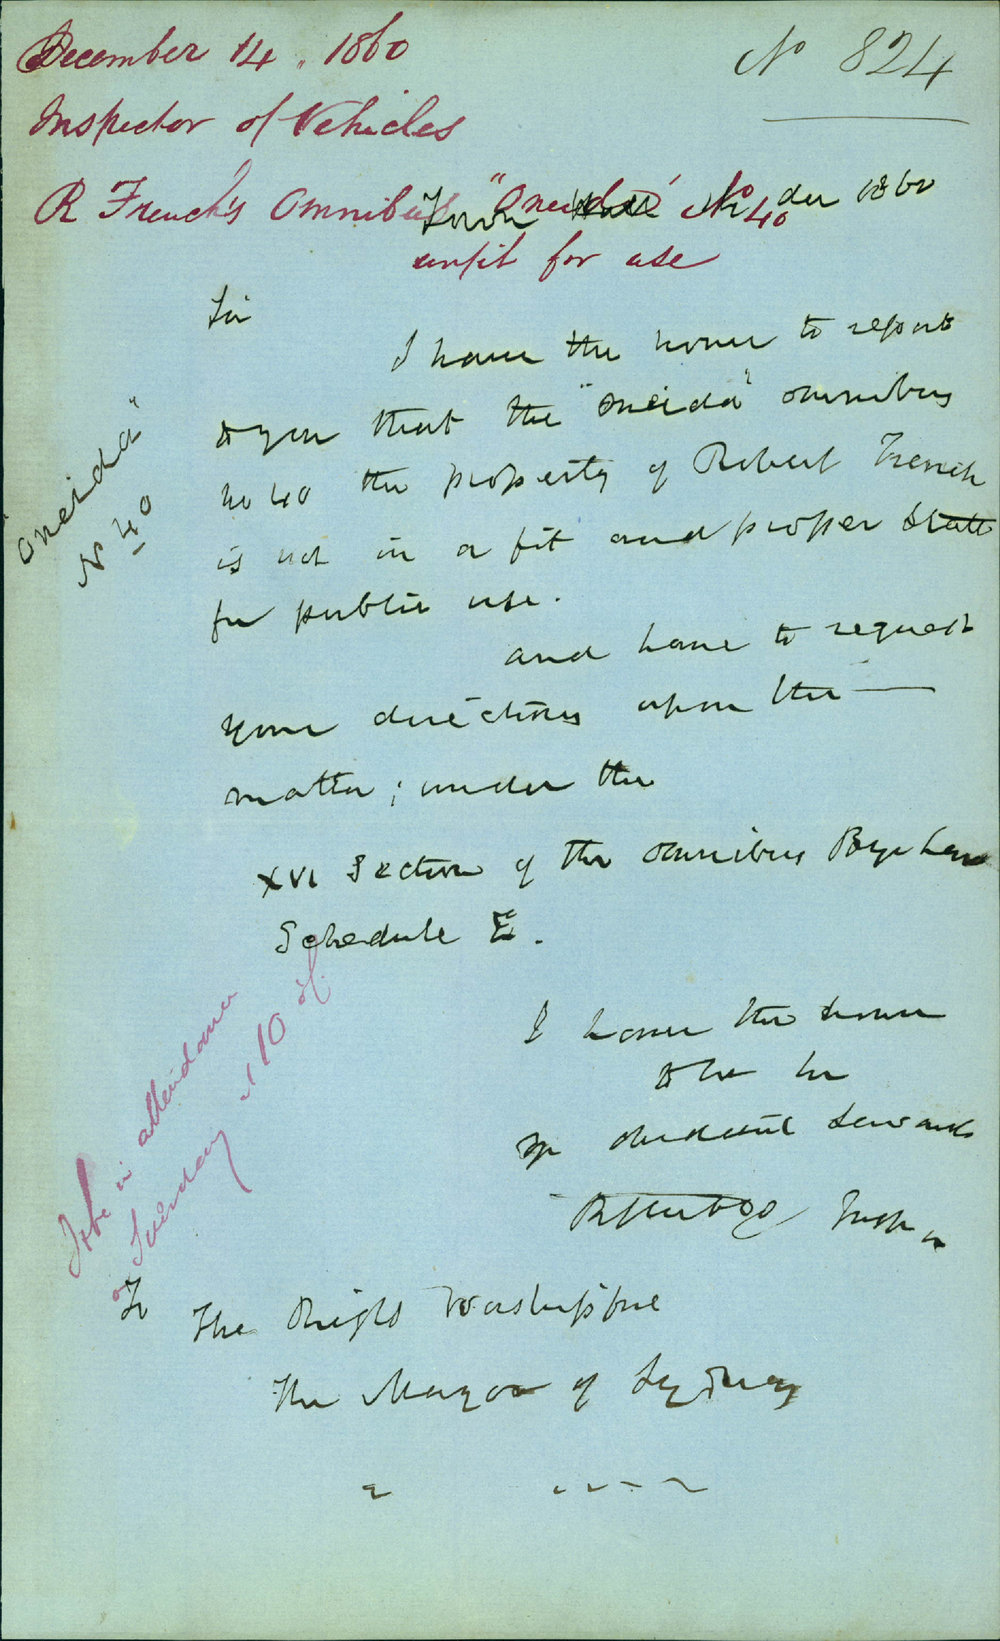 December 14, 1860
No 824
Inspector of Vehicles
R French's Omnibus "Oneida" No 40
unfit for use
Town Hall 14 Der 1860
Sir
I have the honor to report
to you that the "Oneida" omnibus
No 40 the property of Robert French
is not in a fit and proper state
for public use.
and have to request
your directions upon the
matter; under the
XVI Section of the Omnibus Bye Laws
Schedule E.
"Oneida"
No 40
I have the honor
to be Sir
Yr obedient Servant
Inspr
To be in attendance
on Tuesday at 10 o'C.
To
The Right Worshipful
The Mayor of Sydney